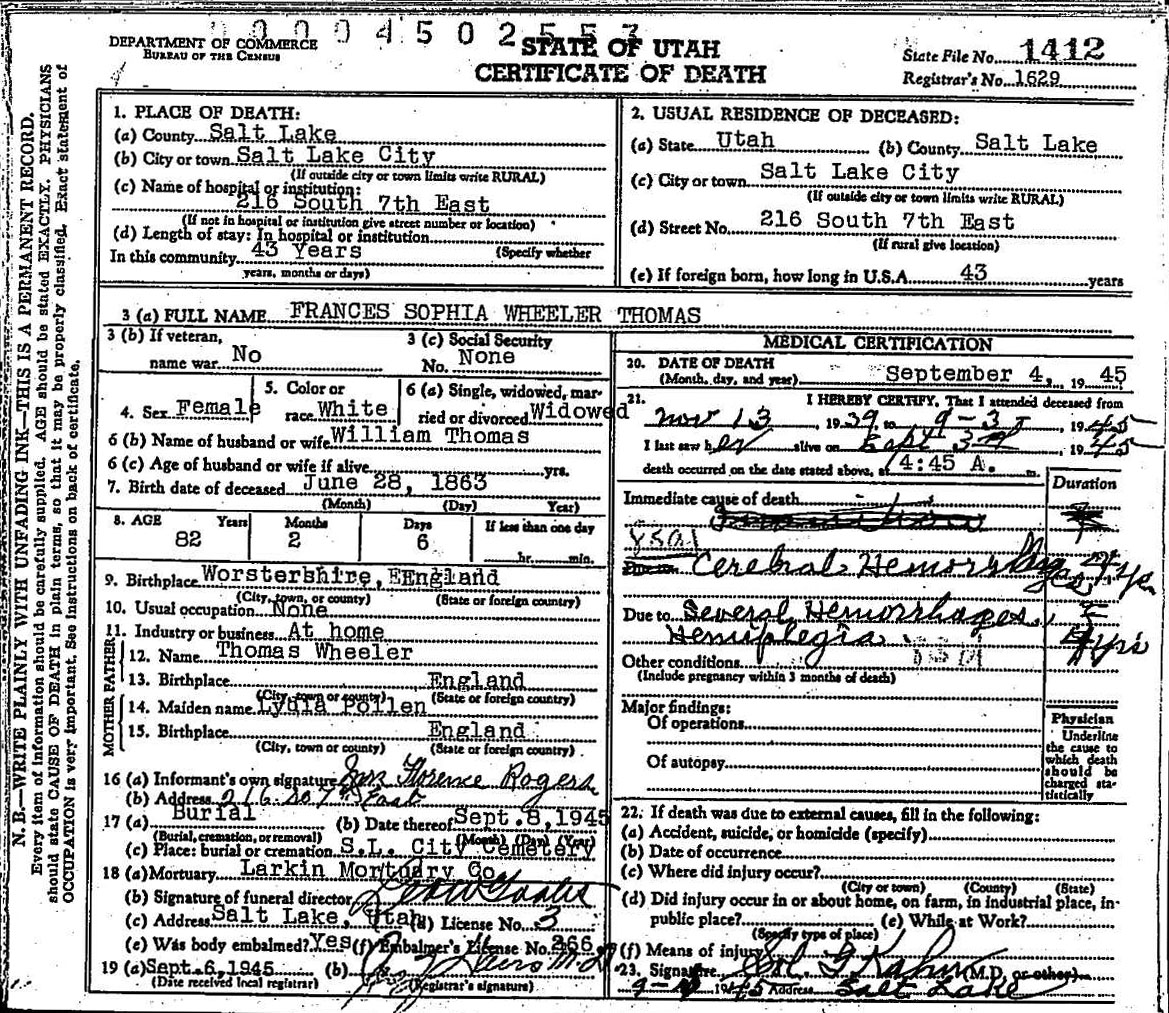 DEPARTMENT OF COMMERCE
BUREAU OF THE CENSUS
STATE OF UTAH
CERTIFICATE OF DEATH
State File No. 1412
Registrar's No. 1629
N. B.—WRITE PLAINLY WITH UNFADING INK—THIS IS A PERMANENT RECORD.
Every item of information should be carefully supplied. AGE should be stated EXACTLY. PHYSICIANS
should state CAUSE OF DEATH in plain terms, so that it may be properly classified. Exact statement of
OCCUPATION is very important. See instructions on back of certificate.
1. PLACE OF DEATH:
(a) County Salt Lake
(b) City or town Salt Lake City
(If outside city or town limits write RURAL)
(c) Name of hospital or institution:
216 South 7th East
(If not in hospital or institution give street number or location)
(d) Length of stay: In hospital or institution
(Specify whether
In this community 43 Years
years, months or days)
2. USUAL RESIDENCE OF DECEASED:
(a) State Utah (b) County Salt Lake
(c) City or town Salt Lake City
(If outside city or town limits write RURAL)
(d) Street No. 216 South 7th East
(If rural give location)
(e) If foreign born, how long in U.S.A. 43 years
3 (a) FULL NAME FRANCES SOPHIA WHEELER THOMAS
3 (b) If veteran,
name war No
3 (c) Social Security
No. None
4. Sex Female
5. Color or
race White
6 (a) Single, widowed, mar-
ried or divorced Widowed
6 (b) Name of husband or wife William Thomas
6 (c) Age of husband or wife if alive yrs.
7. Birth date of deceased June 28, 1863
(Month) (Day) (Year)
8. AGE Years Months Days If less than one day
82 2 6 hr. min.
9. Birthplace Worstershire, EEngland
(City, town, or county) (State or foreign country)
10. Usual occupation None
11. Industry or business At home
FATHER
12. Name Thomas Wheeler
13. Birthplace England
(City, town or county) (State or foreign country)
MOTHER
14. Maiden name Lydia Pollen
15. Birthplace England
(City, town or county) (State or foreign country)
16 (a) Informant's own signature Florence Rogers
(b) Address 216 So 7th East
17 (a) Burial (b) Date thereof Sept. 8, 1945
(Burial, cremation, or removal) (Month) (Day) (Year)
(c) Place: burial or cremation S.L. City Cemetery
18 (a) Mortuary Larkin Mortuary Co
(b) Signature of funeral director
(c) Address Salt Lake, Utah (d) License No. 3
(e) Was body embalmed? Yes (f) Embalmer's License No. 266
19 (a) Sept. 6, 1945 (b)
(Date received local registrar) (Registrar's signature)
MEDICAL CERTIFICATION
20. DATE OF DEATH
(Month, day, and year) September 4, 1945
21. I HEREBY CERTIFY, That I attended deceased from
Nov 13, 1939 to 9-3, 1945
I last saw her alive on Sept 3, 1945
death occurred on the date stated above, at 4:45 A. m.
Duration
Immediate cause of death
Cerebral Hemorrhage
Due to Several Hemorrhages
Hemiplegia
Other conditions
(Include pregnancy within 3 months of death)
Major findings:
Of operations
Of autopsy
Physician
Underline
the cause to
which death
should be
charged sta-
tistically
22. If death was due to external causes, fill in the following:
(a) Accident, suicide, or homicide (specify)
(b) Date of occurrence
(c) Where did injury occur?
(City or town) (County) (State)
(d) Did injury occur in or about home, on farm, in industrial place, in
public place? (e) While at Work?
(Specify type of place)
(f) Means of injury
23. Signature (M.D. or other)
1945 Address Salt Lake